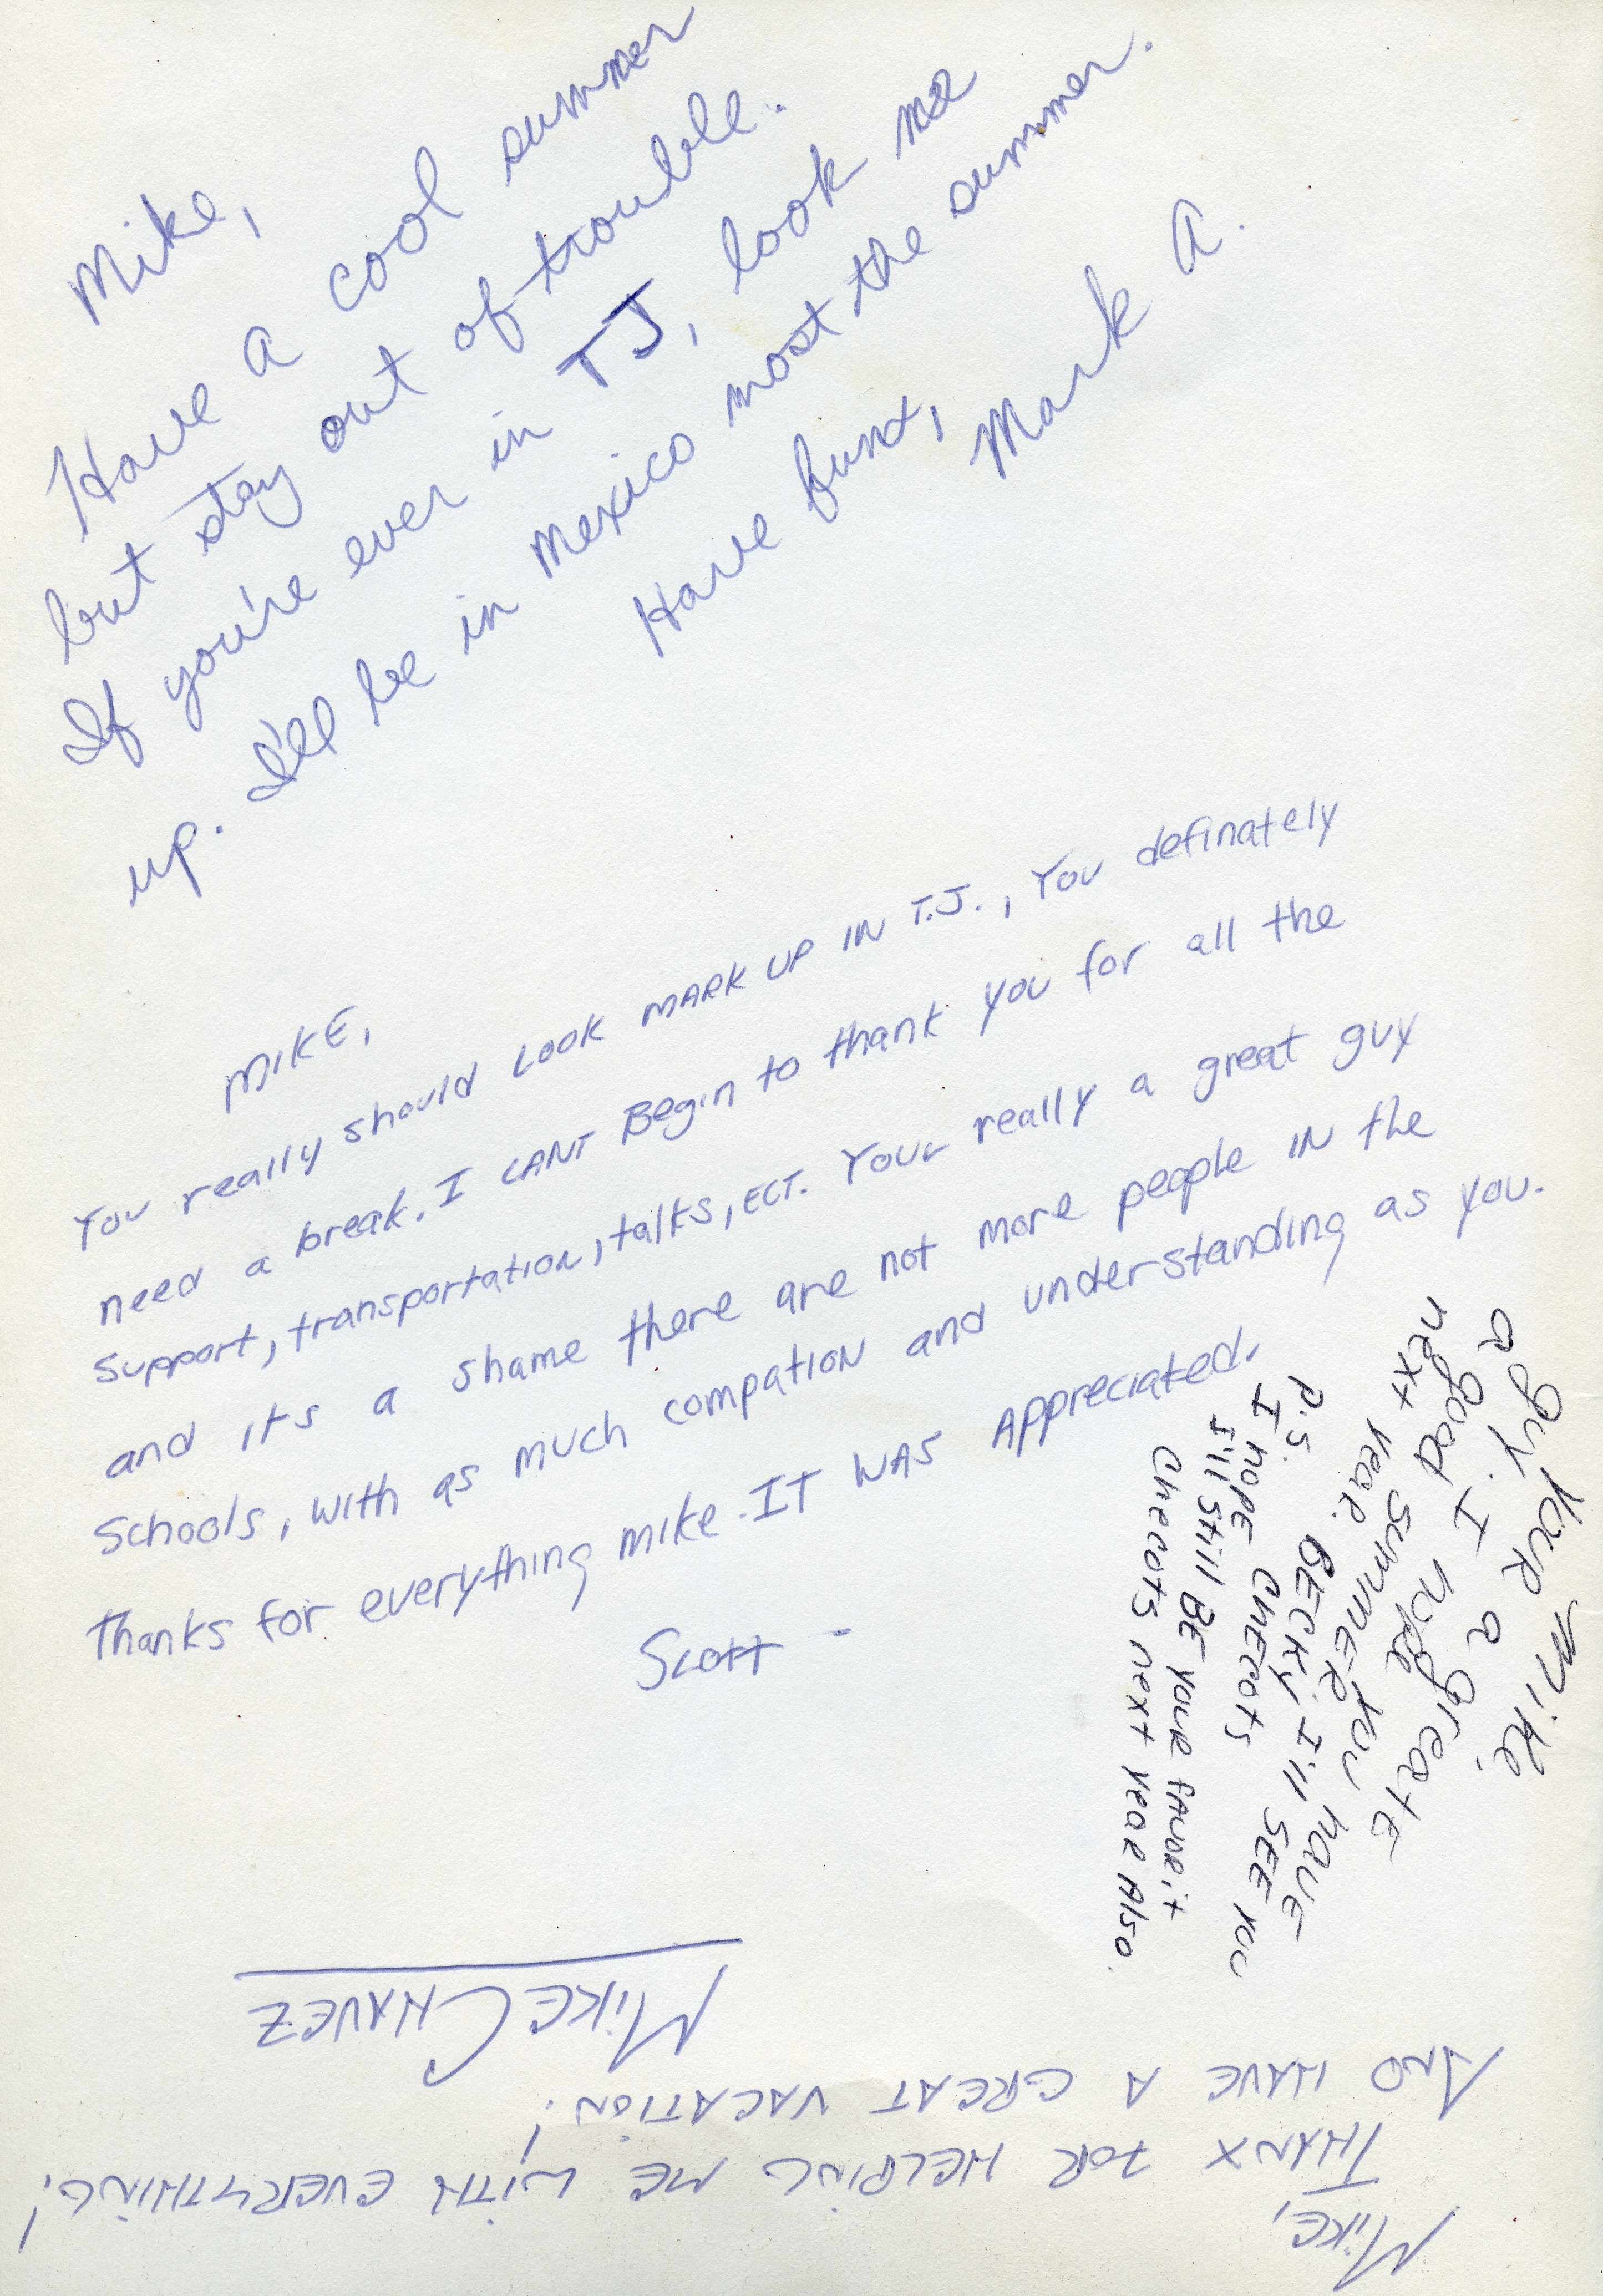 Mike,
Have a cool summer
but stay out of trouble.
If you're ever in TJ, look me
up. I'll be in Mexico most the summer.
Have fun,
Mark A.
MIKE,
You really should LOOK MARK UP IN T.J., You definately
need a break. I CANT Begin to thank you for all the
support, transportation, talks, ECT. Your really a great guy
and its a shame there are not more people IN the
Schools, with as much compation and understanding as you.
Thanks for everything mike. IT WAS APPreciated.
Scott -
Mike,
a guy. Your a greate
good I hope
summer you have
next year. BECKY. I'll SEE you
P.S. I hope CheEcots
I'll still BE your favorit
Cheecots next year Also.
MIKE,
THANX FOR HELPING ME WITH EVERYTHING!
AND HAVE A GREAT VACATION!
MIKE CHAVEZ